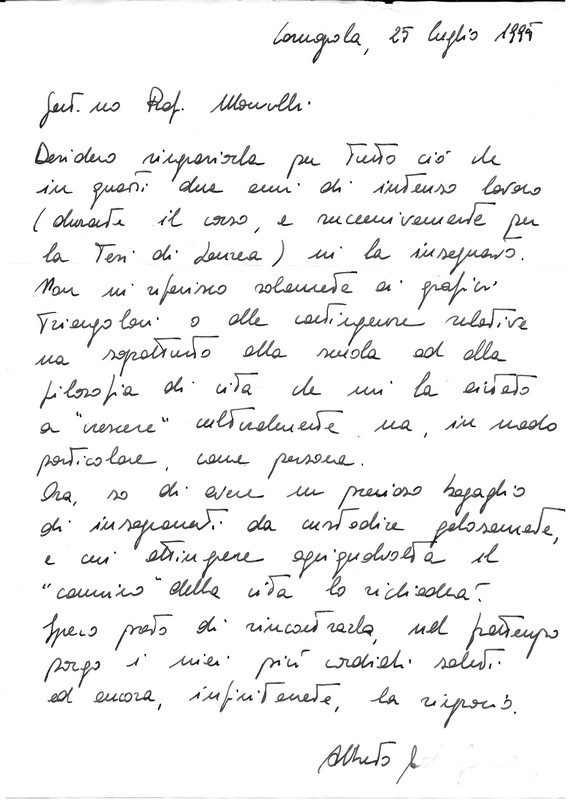 25 luglio 1995
Gent.mo Prof.
Desidero ringraziarla per tutto ciò che
in questi due anni di intenso lavoro
(durante il corso, e successivamente per
la Tesi di Laurea) mi ha insegnato.
Non mi riferisco solamente ai grafici
Triangolari o alle contingenze relative
ma soprattutto alla scuola ed alla
filosofia di vita che mi ha aiutato
a "crescere" culturalmente ma, in modo
particolare, come persona.
Ora, so di avere un prezioso bagaglio
di insegnamenti da custodire gelosamente,
e cui attingere ogniqualvolta il
"cammino" della vita lo richiederà.
Spero presto di rincontrarla, nel frattempo
porgo i miei più cordiali saluti
ed ancora, infinitamente, la ringrazio.
Alberto